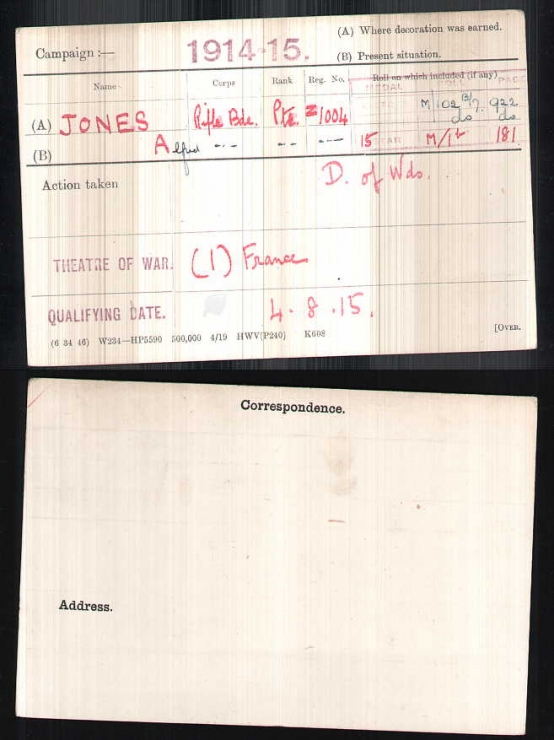 (A) Where decoration was earned.
Campaign :— 1914-15.
(B) Present situation.
Name Corps Rank Reg. No. Roll on which included (if any)
MEDAL PAGE
M/102 B/7. 922
(A) JONES Rifle Bde. Pte. Z/1004 do do
(B) Alfred -"- -"- -"- 15 M/1 181
Action taken D. of Wds.
THEATRE OF WAR. (1) France
QUALIFYING DATE. 4.8.15.
(6 34 46) W234—HP5590 500,000 4/19 HWV(P240) K608 [OVER.
Correspondence.
Address.